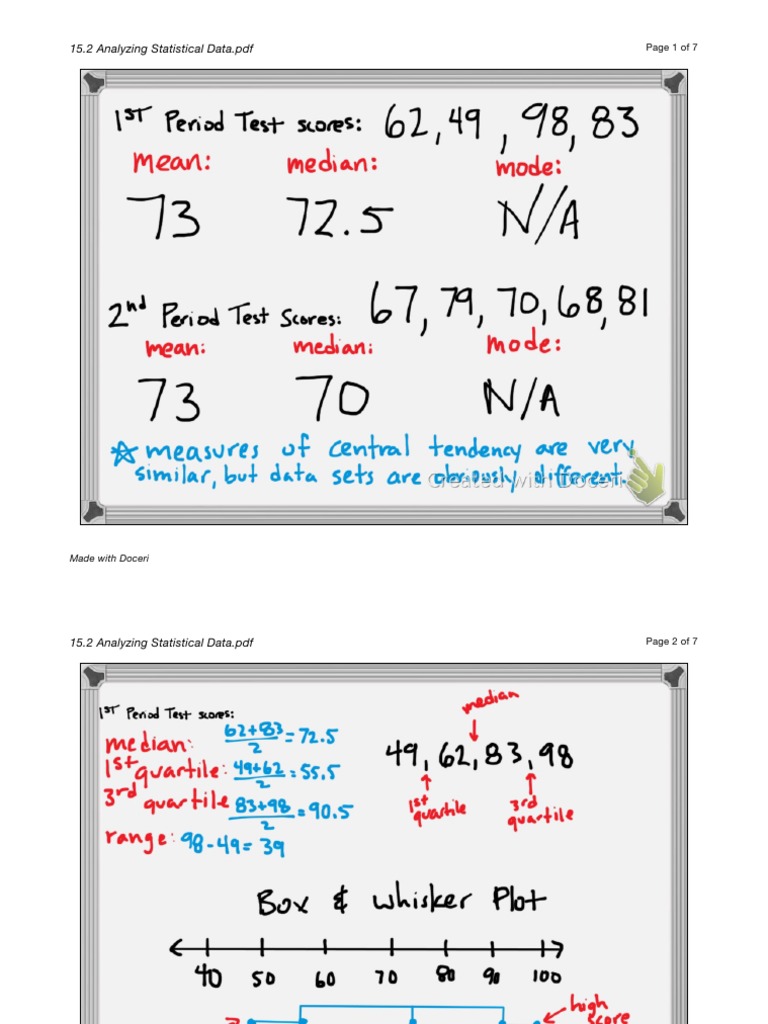 15.2 Analyzing Statistical Data.pdf
Page 1 of 7
1ST Period Test scores: 62, 49, 98, 83
mean: median: mode:
73 72.5 N/A
2nd Period Test Scores: 67, 79, 70, 68, 81
mean: median: mode:
73 70 N/A
☆ measures of central tendency are very
similar, but data sets are obviously different.
Created with Doceri
Made with Doceri
15.2 Analyzing Statistical Data.pdf
Page 2 of 7
1ST Period Test scores:
median: 62+83/2 = 72.5
1st quartile: 49+62/2 = 55.5
3rd quartile 83+98/2 = 90.5
range: 98-49= 39
median
49, 62, 83, 98
1st quartile
3rd quartile
Box & whisker Plot
40 50 60 70 80 90 100
high
score